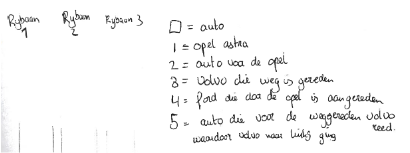 Rijbaan 1
Rijbaan 2
Rijbaan 3
= auto
1 = opel astra
2 = auto voor de opel
3 = volvo die weg is gereden
4 = ford die door de opel is aangereden
5 = auto die voor de weggereden volvo reed.
waardoor volvo naar links ging